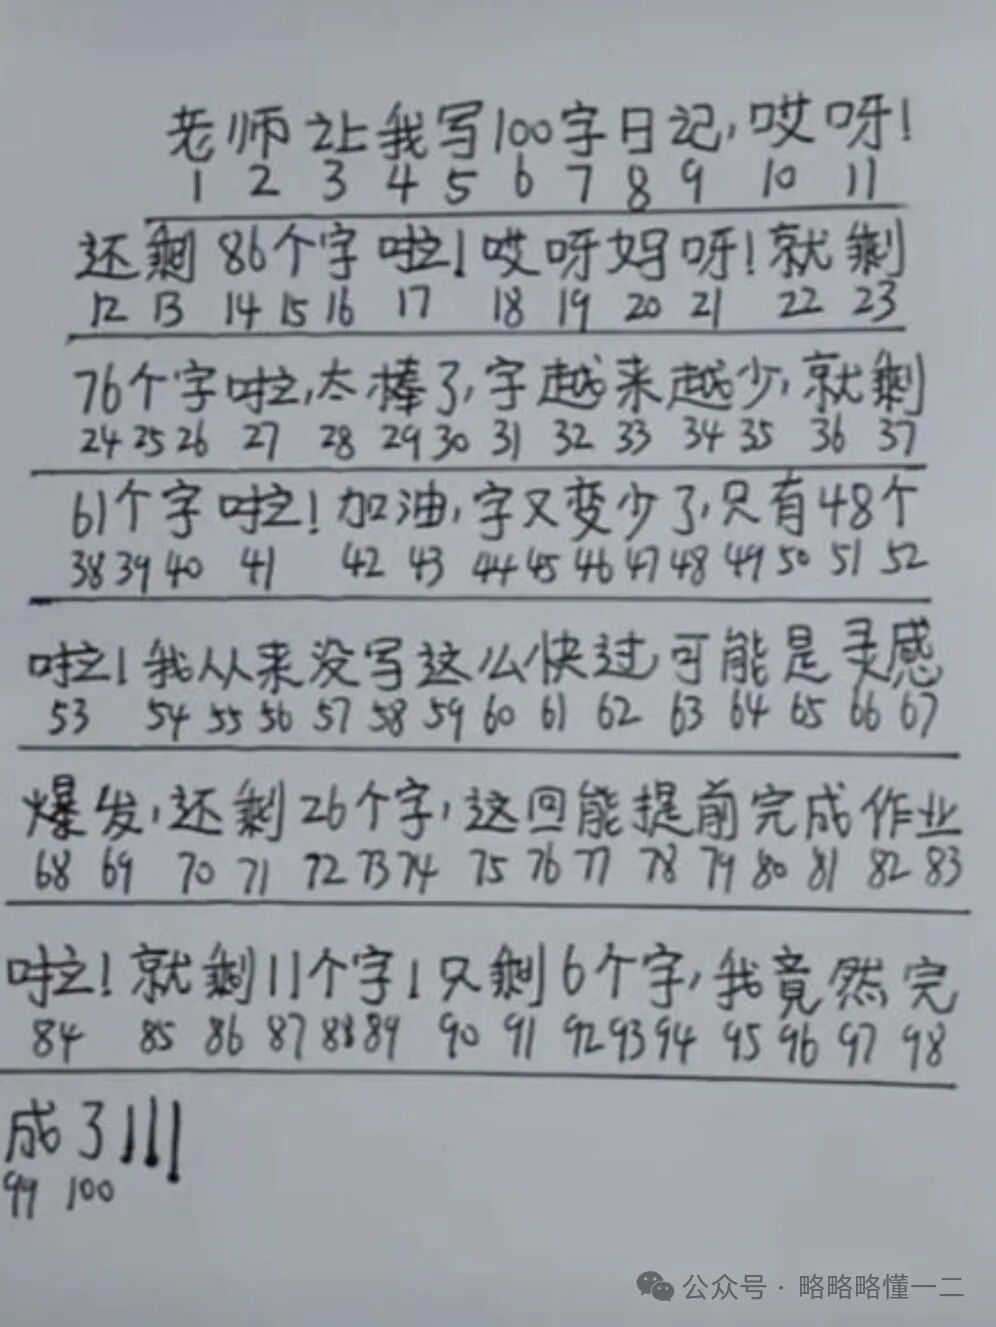 老师让我写100字日记,哎呀!
1 2 3 4 5 6 7 8 9 10 11
还剩86个字啦!哎呀妈呀!就剩
12 13 14 15 16 17 18 19 20 21 22 23
76个字啦,太棒了,字越来越少,就剩
24 25 26 27 28 29 30 31 32 33 34 35 36 37
61个字啦!加油,字又变少了,只有48个
38 39 40 41 42 43 44 45 46 47 48 49 50 51 52
啦!我从来没写这么快过可能是灵感
53 54 55 56 57 58 59 60 61 62 63 64 65 66 67
爆发,还剩26个字,这回能提前完成作业
68 69 70 71 72 73 74 75 76 77 78 79 80 81 82 83
啦!就剩11个字!只剩6个字,我竟然完
84 85 86 87 88 89 90 91 92 93 94 95 96 97 98
成了!!!
99 100
公众号·略略略懂一二